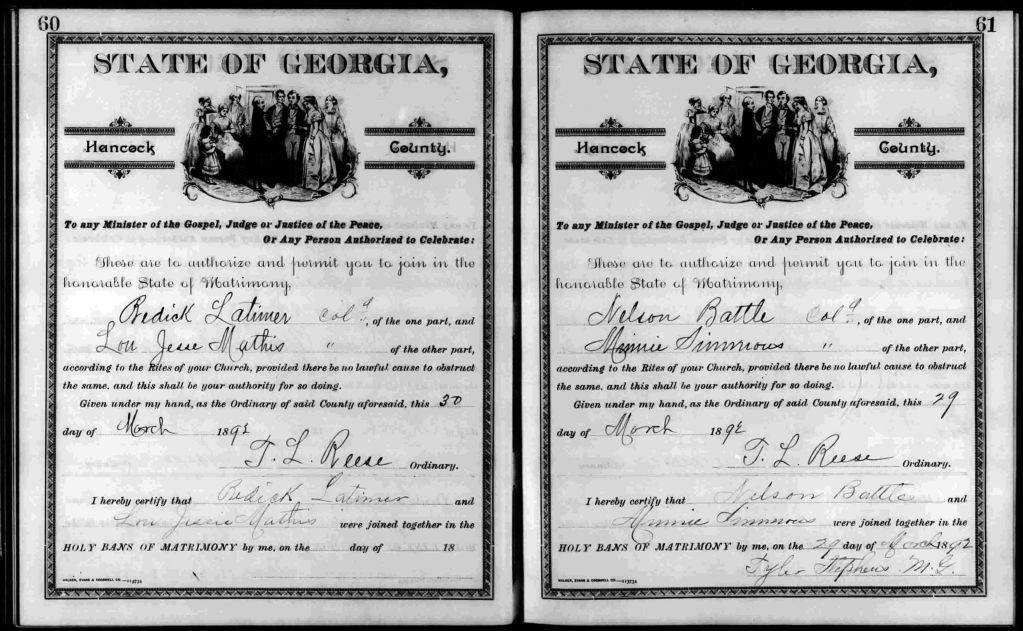 60
STATE OF GEORGIA,
Hancock County.
To any Minister of the Gospel, Judge or Justice of the Peace,
Or Any Person Authorized to Celebrate:
These are to authorize and permit you to join in the
honorable State of Matrimony,
Redick Latimer Col'd, of the one part, and
Lou Jesse Mathis " of the other part,
according to the Rites of your Church, provided there be no lawful cause to obstruct
the same, and this shall be your authority for so doing.
Given under my hand, as the Ordinary of said County aforesaid, this 30
day of March 1892
T. L. Reese Ordinary.
I hereby certify that Redick Latimer and
Lou Jessie Mathis were joined together in the
HOLY BANS OF MATRIMONY by me, on the day of 18
WALKER, EVANS & COGSWELL CO.—113734
61
STATE OF GEORGIA,
Hancock County.
To any Minister of the Gospel, Judge or Justice of the Peace,
Or Any Person Authorized to Celebrate:
These are to authorize and permit you to join in the
honorable State of Matrimony,
Nelson Battle Col'd, of the one part, and
Minnie Simmons " of the other part,
according to the Rites of your Church, provided there be no lawful cause to obstruct
the same, and this shall be your authority for so doing.
Given under my hand, as the Ordinary of said County aforesaid, this 29
day of March 1892
T. L. Reese Ordinary.
I hereby certify that Nelson Battle and
Minnie Simmons were joined together in the
HOLY BANS OF MATRIMONY by me, on the 29 day of March 1892
Tyler Stephens M.G.
WALKER, EVANS & COGSWELL CO.—113734